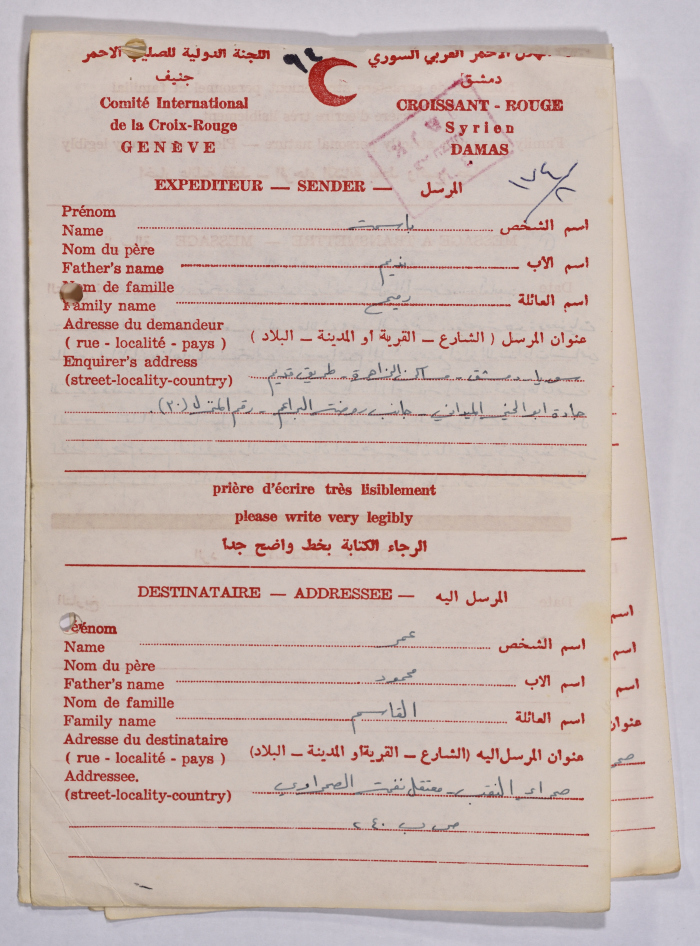 اللجنة الدولية للصليب الاحمر
جنيف
Comité International
de la Croix-Rouge
GENÈVE
٩٤
الهلال الاحمر العربي السوري
دمشق
CROISSANT - ROUGE
Syrien
DAMAS
EXPEDITEUR — SENDER — المرسل
Prénom
Name باسمة اسم الشخص
Nom du père
Father's name نديم اسم الاب
Nom de famille
Family name اسم العائلة
Adresse du demandeur
( rue - localité - pays ) عنوان المرسل ( الشارع ــ القرية او المدينة ــ البلاد )
Enquirer's address
(street-locality-country) سوريا - دمشق - مساكن الزاهرة - طريق قديم
جادة ابو الخير الميداني - جانب روضة البراعم - رقم المنزل (٣٠).
prière d'écrire très lisiblement
please write very legibly
الرجاء الكتابة بخط واضح جدا
DESTINATAIRE — ADDRESSEE — المرسل اليه
Prénom
Name عمر اسم الشخص
Nom du père
Father's name محمود اسم الاب
Nom de famille
Family name القاسم اسم العائلة
Adresse du destinataire
( rue - localité - pays ) عنوان المرسل اليه (الشارع ــ القرية او المدينة ــ البلاد)
Addressee.
(street-locality-country) صحراء النقب - معتقل نفحة الصحراوي
ص ب ٢٤٠
اسم
اسم
اسم
عنوان